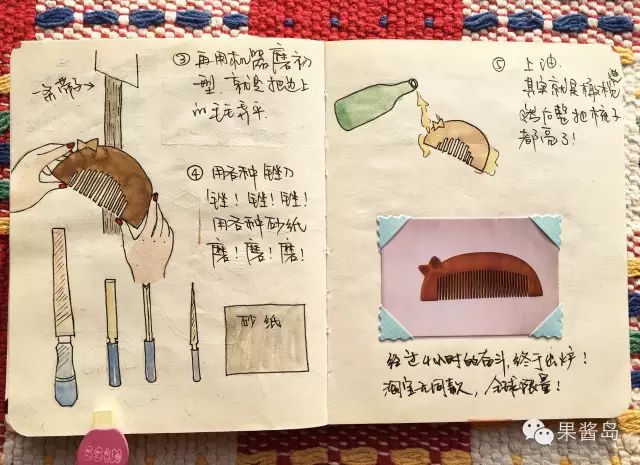 ③ 再用机器磨初
型. 就是把边上
的毛毛弄平.
一条带子→
④ 用各种锉刀
锉！锉！锉！
用各种砂纸
磨！磨！磨！
砂纸
⑤ 上油.
其实就是橄榄油
然后整把梳子
都亮了！
经过4小时的奋斗,终于出炉！
淘宝无同款，全球限量！
果酱岛